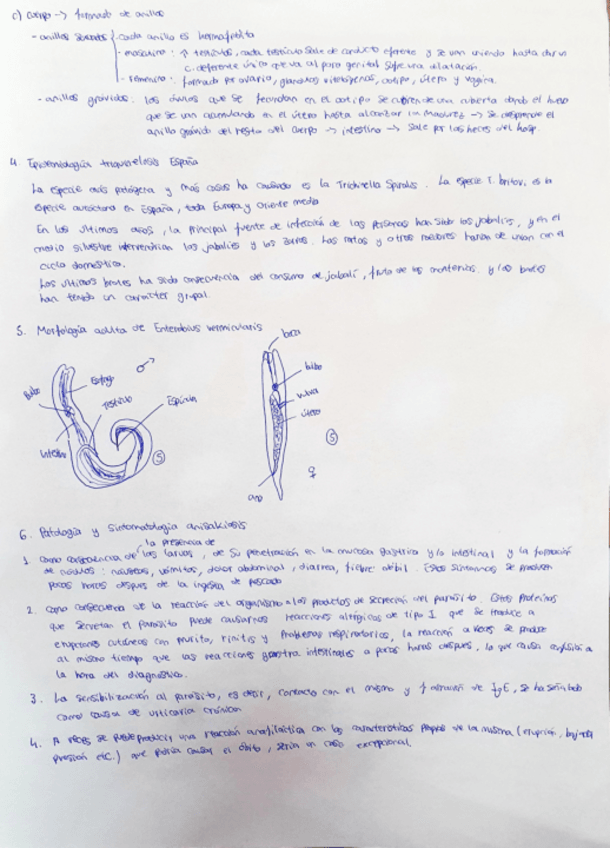 c) Cuerpo -> formado de anillos
- anillos sexuados { - cada anillo es hermafrodita
- masculino: ↑ testículos, cada testículo sale de conducto eferente y se van uniendo hasta dar un
c. deferente único que va al poro genital. Sufre una dilatación.
- femenino: formado por ovario, glándulas vitelógenas, ootipo, útero y vagina.
- anillos grávidos: los óvulos que se fecundan en el ootipo se cubren de una cubierta dando el huevo
que se van acumulando en el útero hasta alcanzar la madurez -> se desprende el
anillo grávido del resto del cuerpo -> intestino -> sale por las heces del hosp.
4 Epidemiología triquinelosis España
La especie más patógena y más casos ha causado es la Trichinella Spiralis. La especie T. britovi, es la
especie autóctona en España, toda Europa y Oriente medio
En los últimos años, la principal fuente de infección de las personas han sido los jabalíes, y en el
medio silvestre intervendrían los jabalíes y los zorros. Las ratas y otros roedores harían de unión con el
ciclo doméstico.
Los últimos brotes ha sido consecuencia del consumo de jabalí, fruto de las monterías. y los brotes
han tenido un carácter grupal.
5. Morfología adulta de Enterobius vermicularis
boca
♂
Esófago
Bulbo
Testículo
Espícula
Intestino
5
bulbo
vulva
útero
5
♀
ano
6. Patología y Sintomatología anisakiosis
la presencia de
1. Como consecuencia de las larvas, de su penetración en la mucosa gástrica y/o intestinal y la formación
de nódulos: náuseas, vómitos, dolor abdominal, diarrea, fiebre débil. Estos síntomas se producen
pocas horas después de la ingesta de pescado
2. Como consecuencia de la reacción del organismo a los productos de secreción del parásito. Estas proteínas
que secretan el parásito puede causarnos reacciones alérgicas de tipo I que se traduce a
erupciones cutáneas con prurito, rinitis y problemas respiratorios, la reacción a veces se produce
al mismo tiempo que las reacciones gastro intestinales a pocas horas después, lo que causa confusión a
la hora del diagnóstico.
3. La sensibilización al parásito, es decir, contacto con el mismo y ↑ de IgE, se ha señalado
como causa de urticaria crónica
4. A veces se puede producir una reacción anafiláctica con las características propias de la misma (erupción, baja
presión etc.) que podría causar el óbito, sería un caso excepcional.